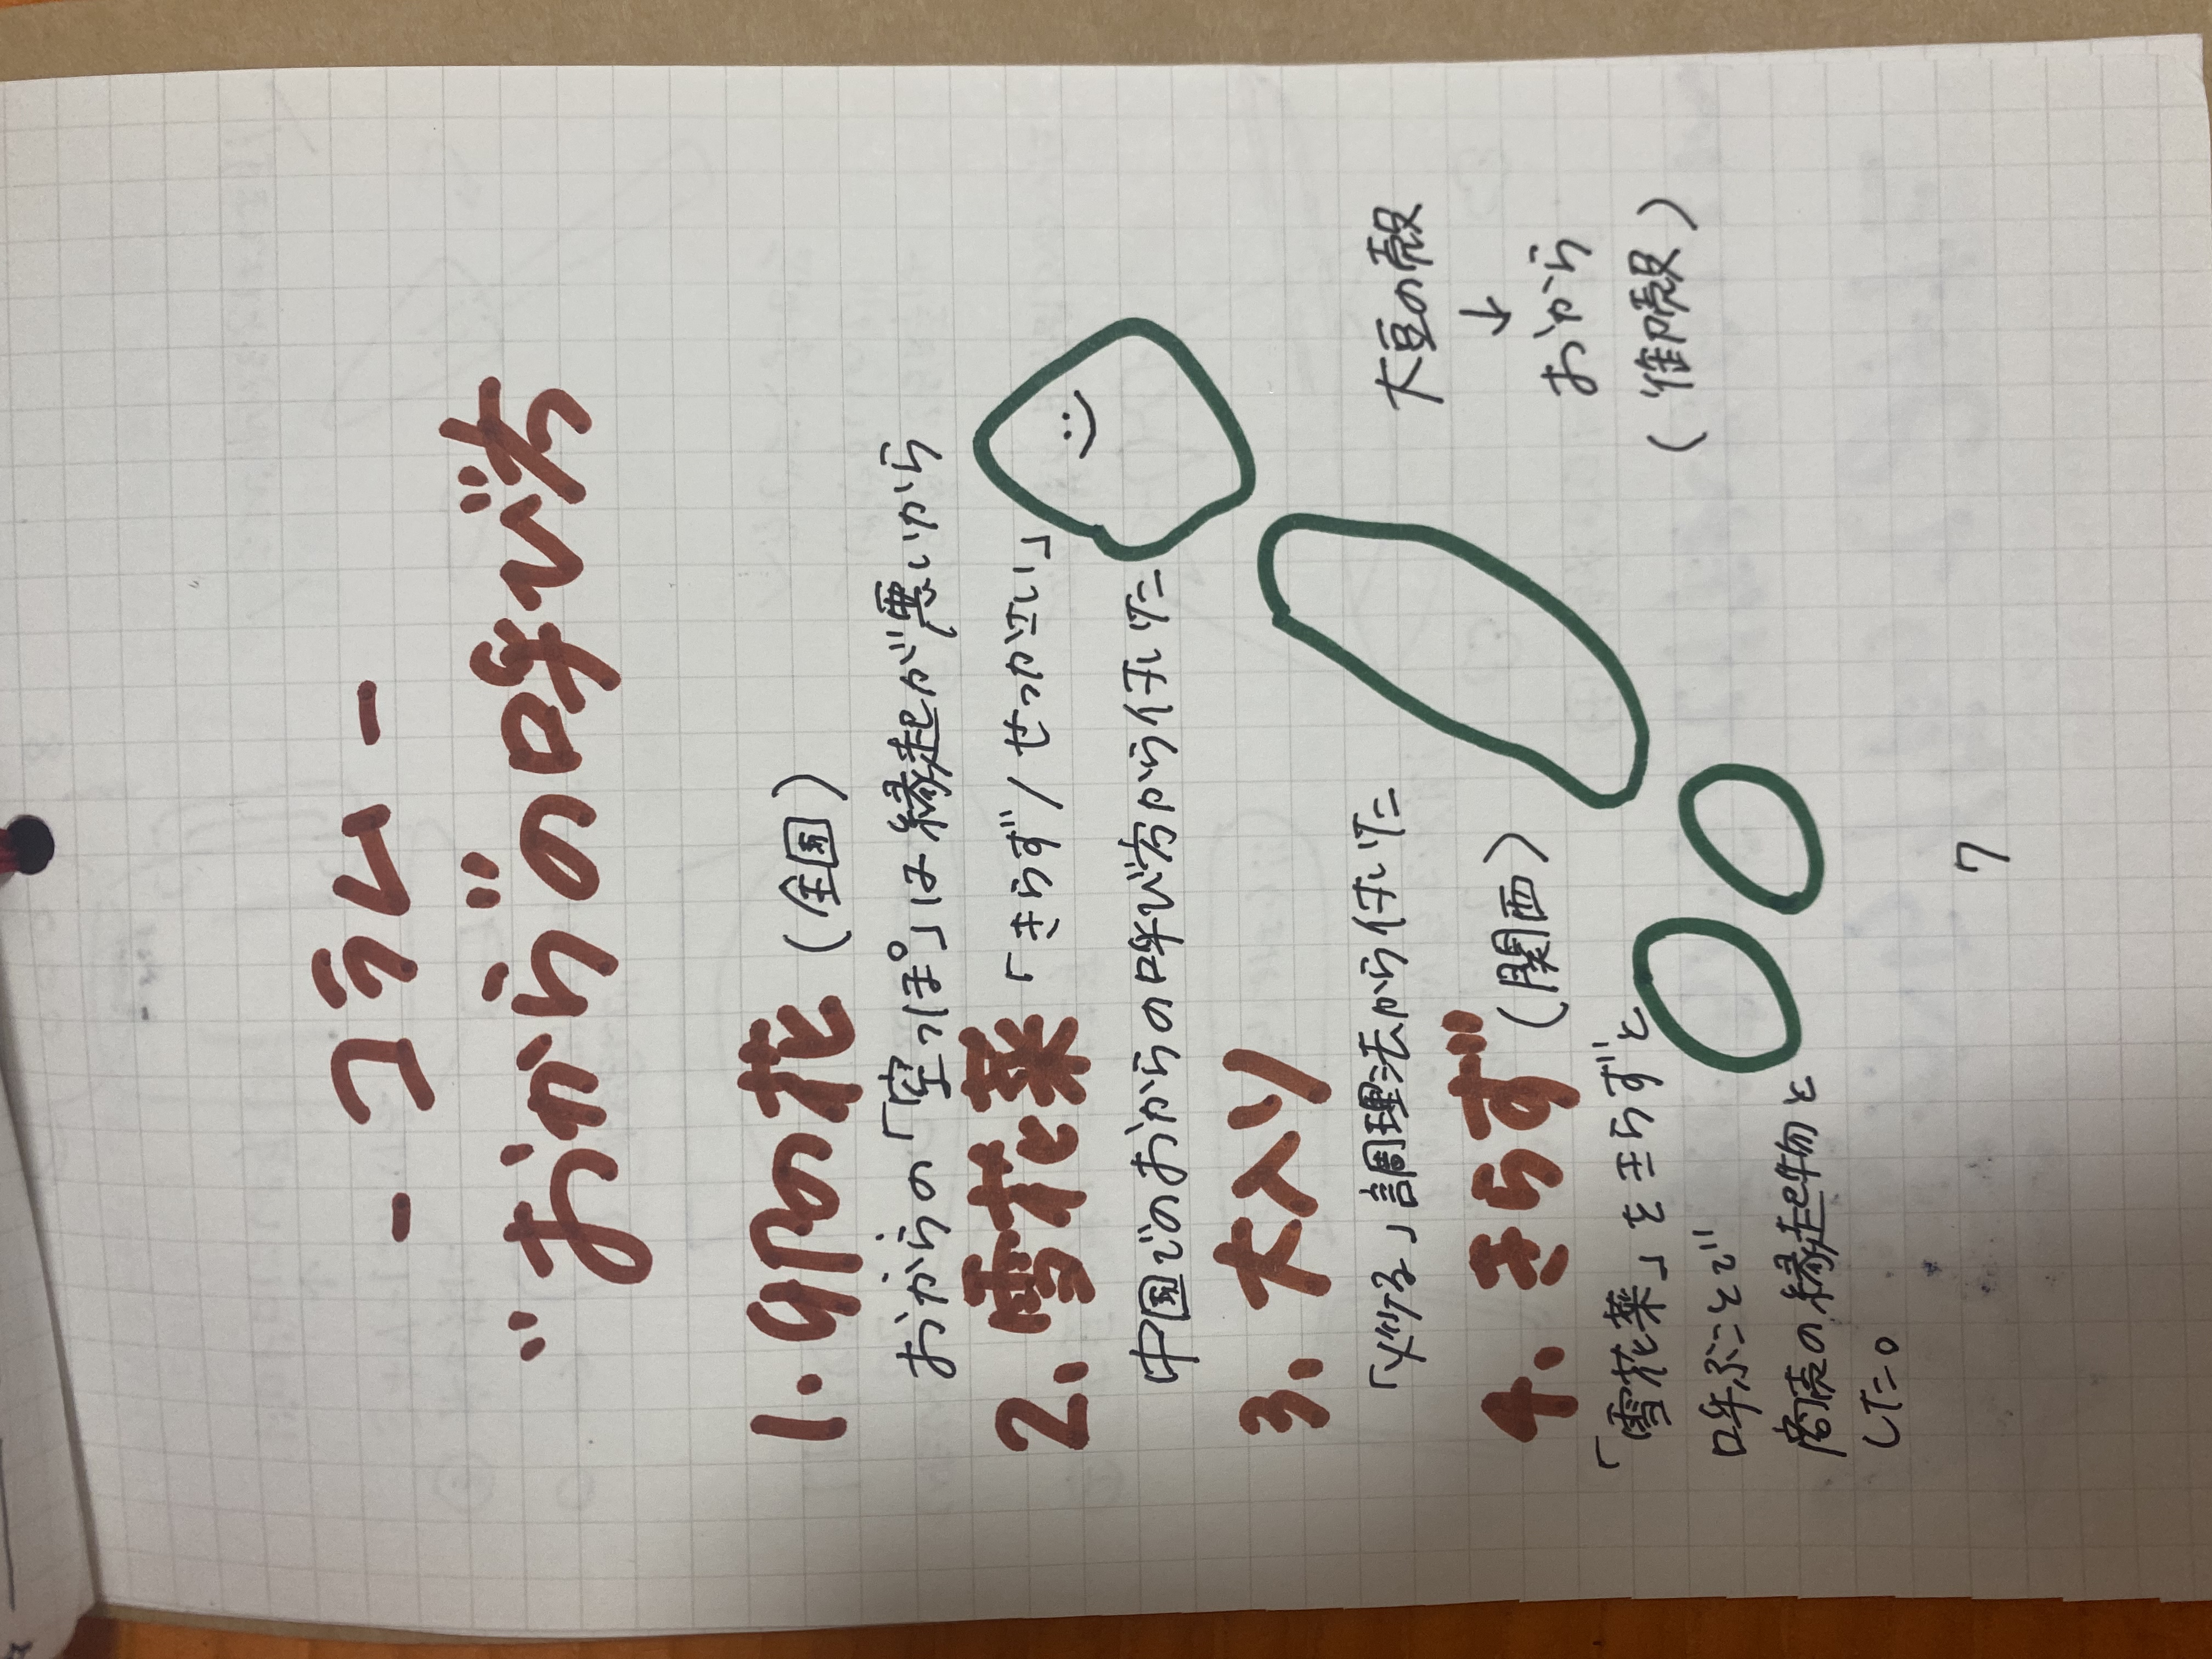 - コラム -
"おから"の呼び方
1. 卯の花 (全国)
おからの「空っぽ」は縁起が悪いから
2. 雪花菜 「きらず/せっかさい」
中国でのおからの呼び方から付いた
3. 大入り
「炒る」調理法から付いた
4. きらず (関西)
「雪花菜」をきらずと
呼ぶことで
商売の縁起物と
した。
大豆の殻
↓
おから
(御殻)
7